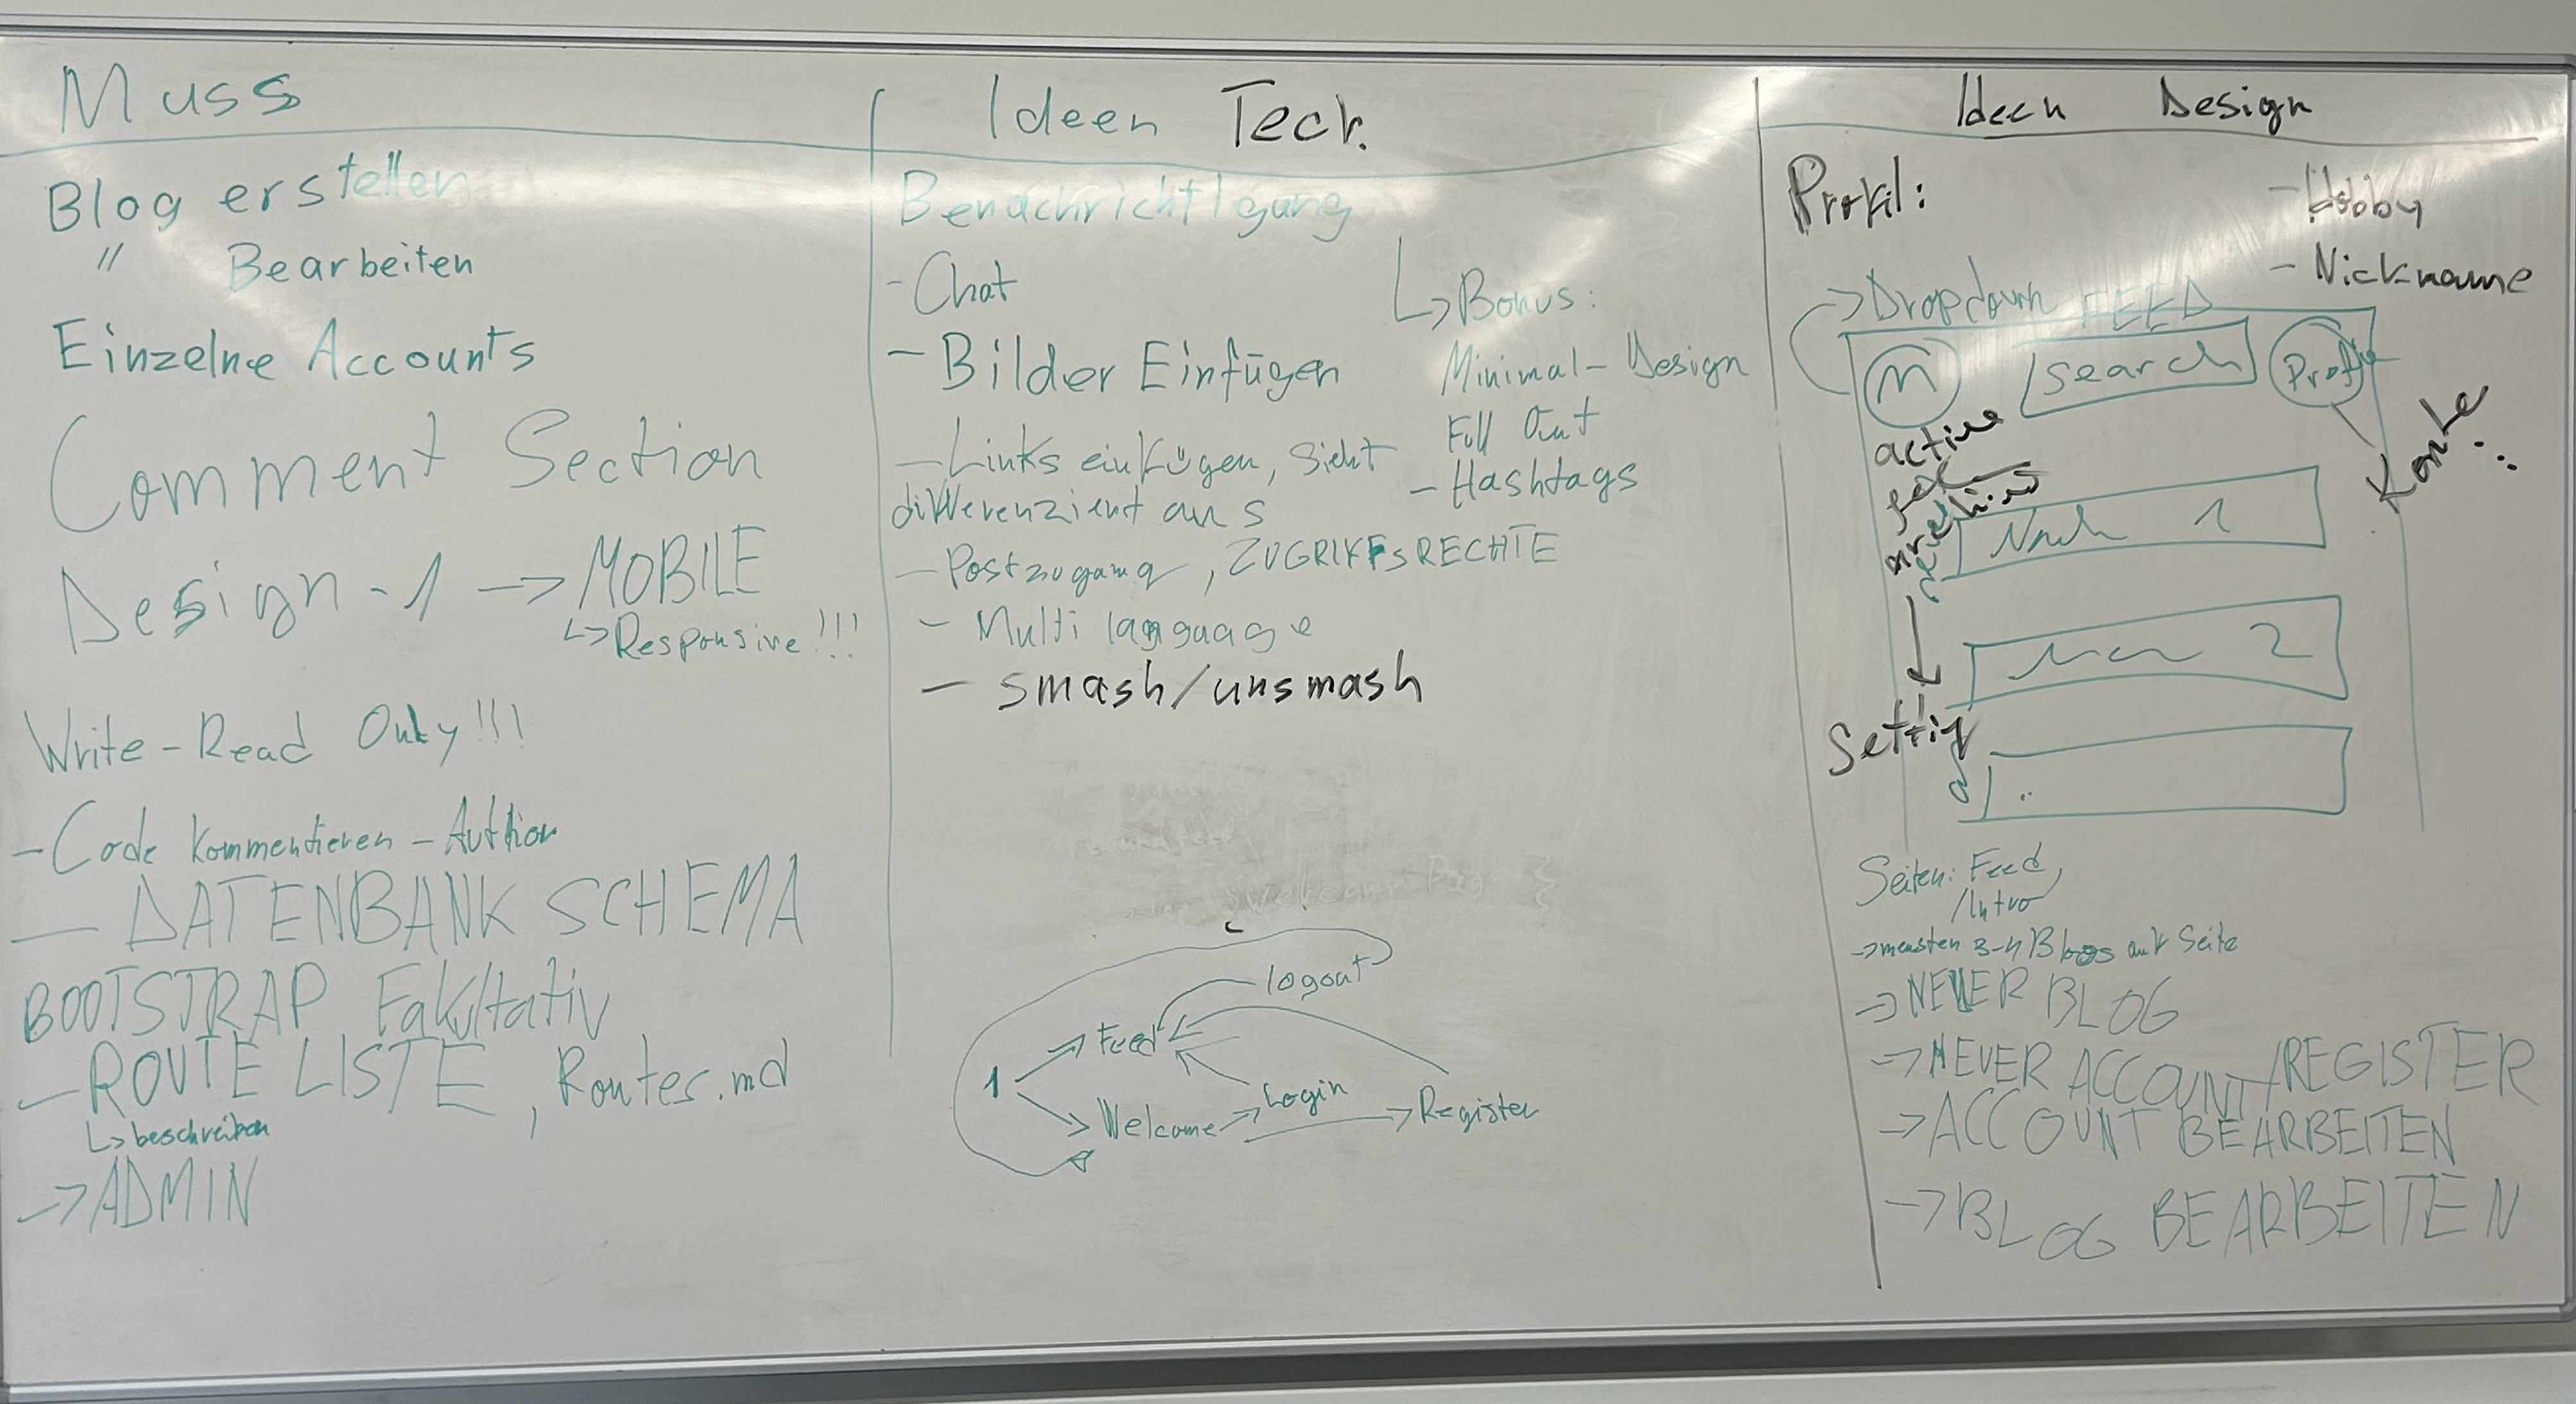 Muss
Blog erstellen
" Bearbeiten
Einzelne Accounts
Comment Section
Design - 1 -> MOBILE
↳ Responsive!!!
Write-Read Only!!!
- Code kommentieren - Author
- DATENBANK SCHEMA
BOOTSTRAP Fakultativ
- ROUTE LISTE, Routes.md
↳ beschreiben
-> ADMIN
Ideen Tech.
Benachrichtigung
- Chat
- Bilder Einfügen
- Links einfügen, sieht
differenziert aus
- Postzugang, ZUGRIFFSRECHTE
- Multi language
- smash/unsmash
↳ Bonus:
Minimal-Design
Full Out
- Hashtags
logout
1
Feed
Login
Welcome
Register
Ideen Design
Profil:
- Hobby
- Nickname
-> Dropdown FEED
m
search
Profile
active
1
2
Konto
Seiten: Feed,
/Intro
-> 3-4 Blogs auf Seite
-> NEUER BLOG
-> NEUER ACCOUNT/REGISTER
-> ACCOUNT BEARBEITEN
-> BLOG BEARBEITEN